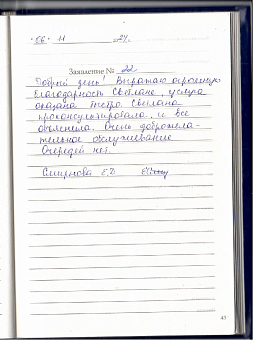 "06" 11 2024.
Заявление № 22
Добрый день! Выражаю огромную
благодарность Светлане, услуга
оказана быстро. Светлана
проконсультировала, и все
объяснила. Очень доброжела-
тельное обслуживание
Очередей нет.
Смирнова Е.В
41